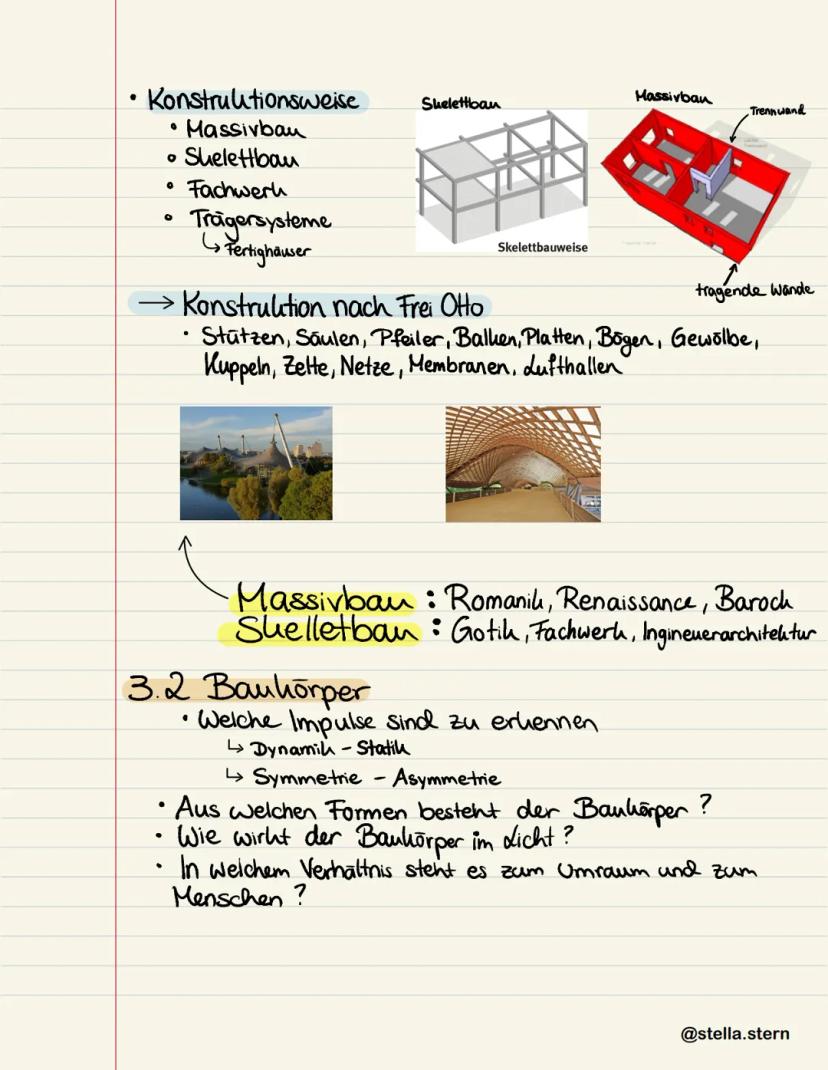 • Konstruktionsweise
• Massivbau
• Skelettbau
• Fachwerk
• Trägersysteme
↳ Fertighäuser
Skelettbau
Skelettbauweise
Massivbau
Trennwand
tragende Wände
→ Konstruktion nach Frei Otto
• Stützen, Säulen, Pfeiler, Balken, Platten, Bögen, Gewölbe,
Kuppeln, Zelte, Netze, Membranen, Lufthallen
Massivbau : Romanik, Renaissance, Barock
Skelletbau : Gotik, Fachwerk, Ingineuerarchitektur
3.2 Baukörper
• Welche Impulse sind zu erkennen
↳ Dynamik – Statik
↳ Symmetrie – Asymmetrie
• Aus welchen Formen besteht der Baukörper ?
• Wie wirkt der Baukörper im Licht ?
• In welchem Verhältnis steht es zum Umraum und zum
Menschen ?
@stella.stern